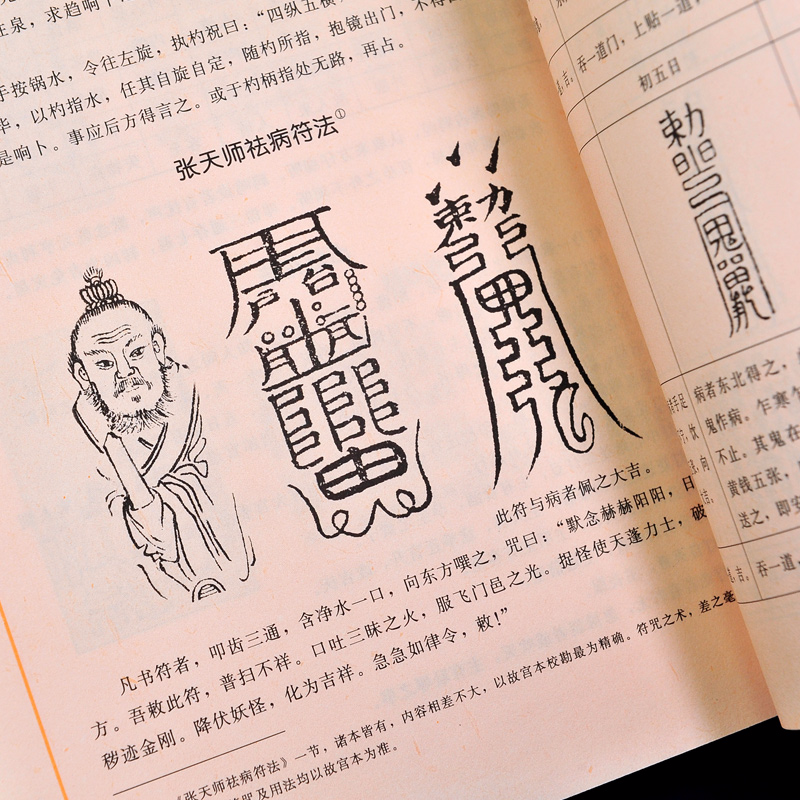 狂泉，求趋响卜
手按锅水，令往左旋，执杓祝曰：“四纵五横，
华，以杓指水，任其自旋自定，随杓所指，抱镜出门，不得
是响卜。事应后方得言之。或于杓柄指处无路，再占。
张天师祛病符法①
此符与病者佩之大吉。
凡书符者，叩齿三通，含净水一口，向东方噀之，咒曰：“默念赫赫阳阳，日
方。吾敕此符，普扫不祥。口吐三昧之火，服飞门邑之光。捉怪使天蓬力士，破
秽迹金刚。降伏妖怪，化为吉祥。急急如律令，敕！”
《张天师祛病符法》一节，诸本皆有，内容相差不大，以故宫本校勘最为精确。符咒之术，差之毫
符咒及用法均以故宫本为准。
吉。吞一道门，上贴一道，
初五日
病者东北得之，
鬼作病。乍寒乍
不止。其鬼在
黄钱五张，
送之，即安
吉。吞一道，